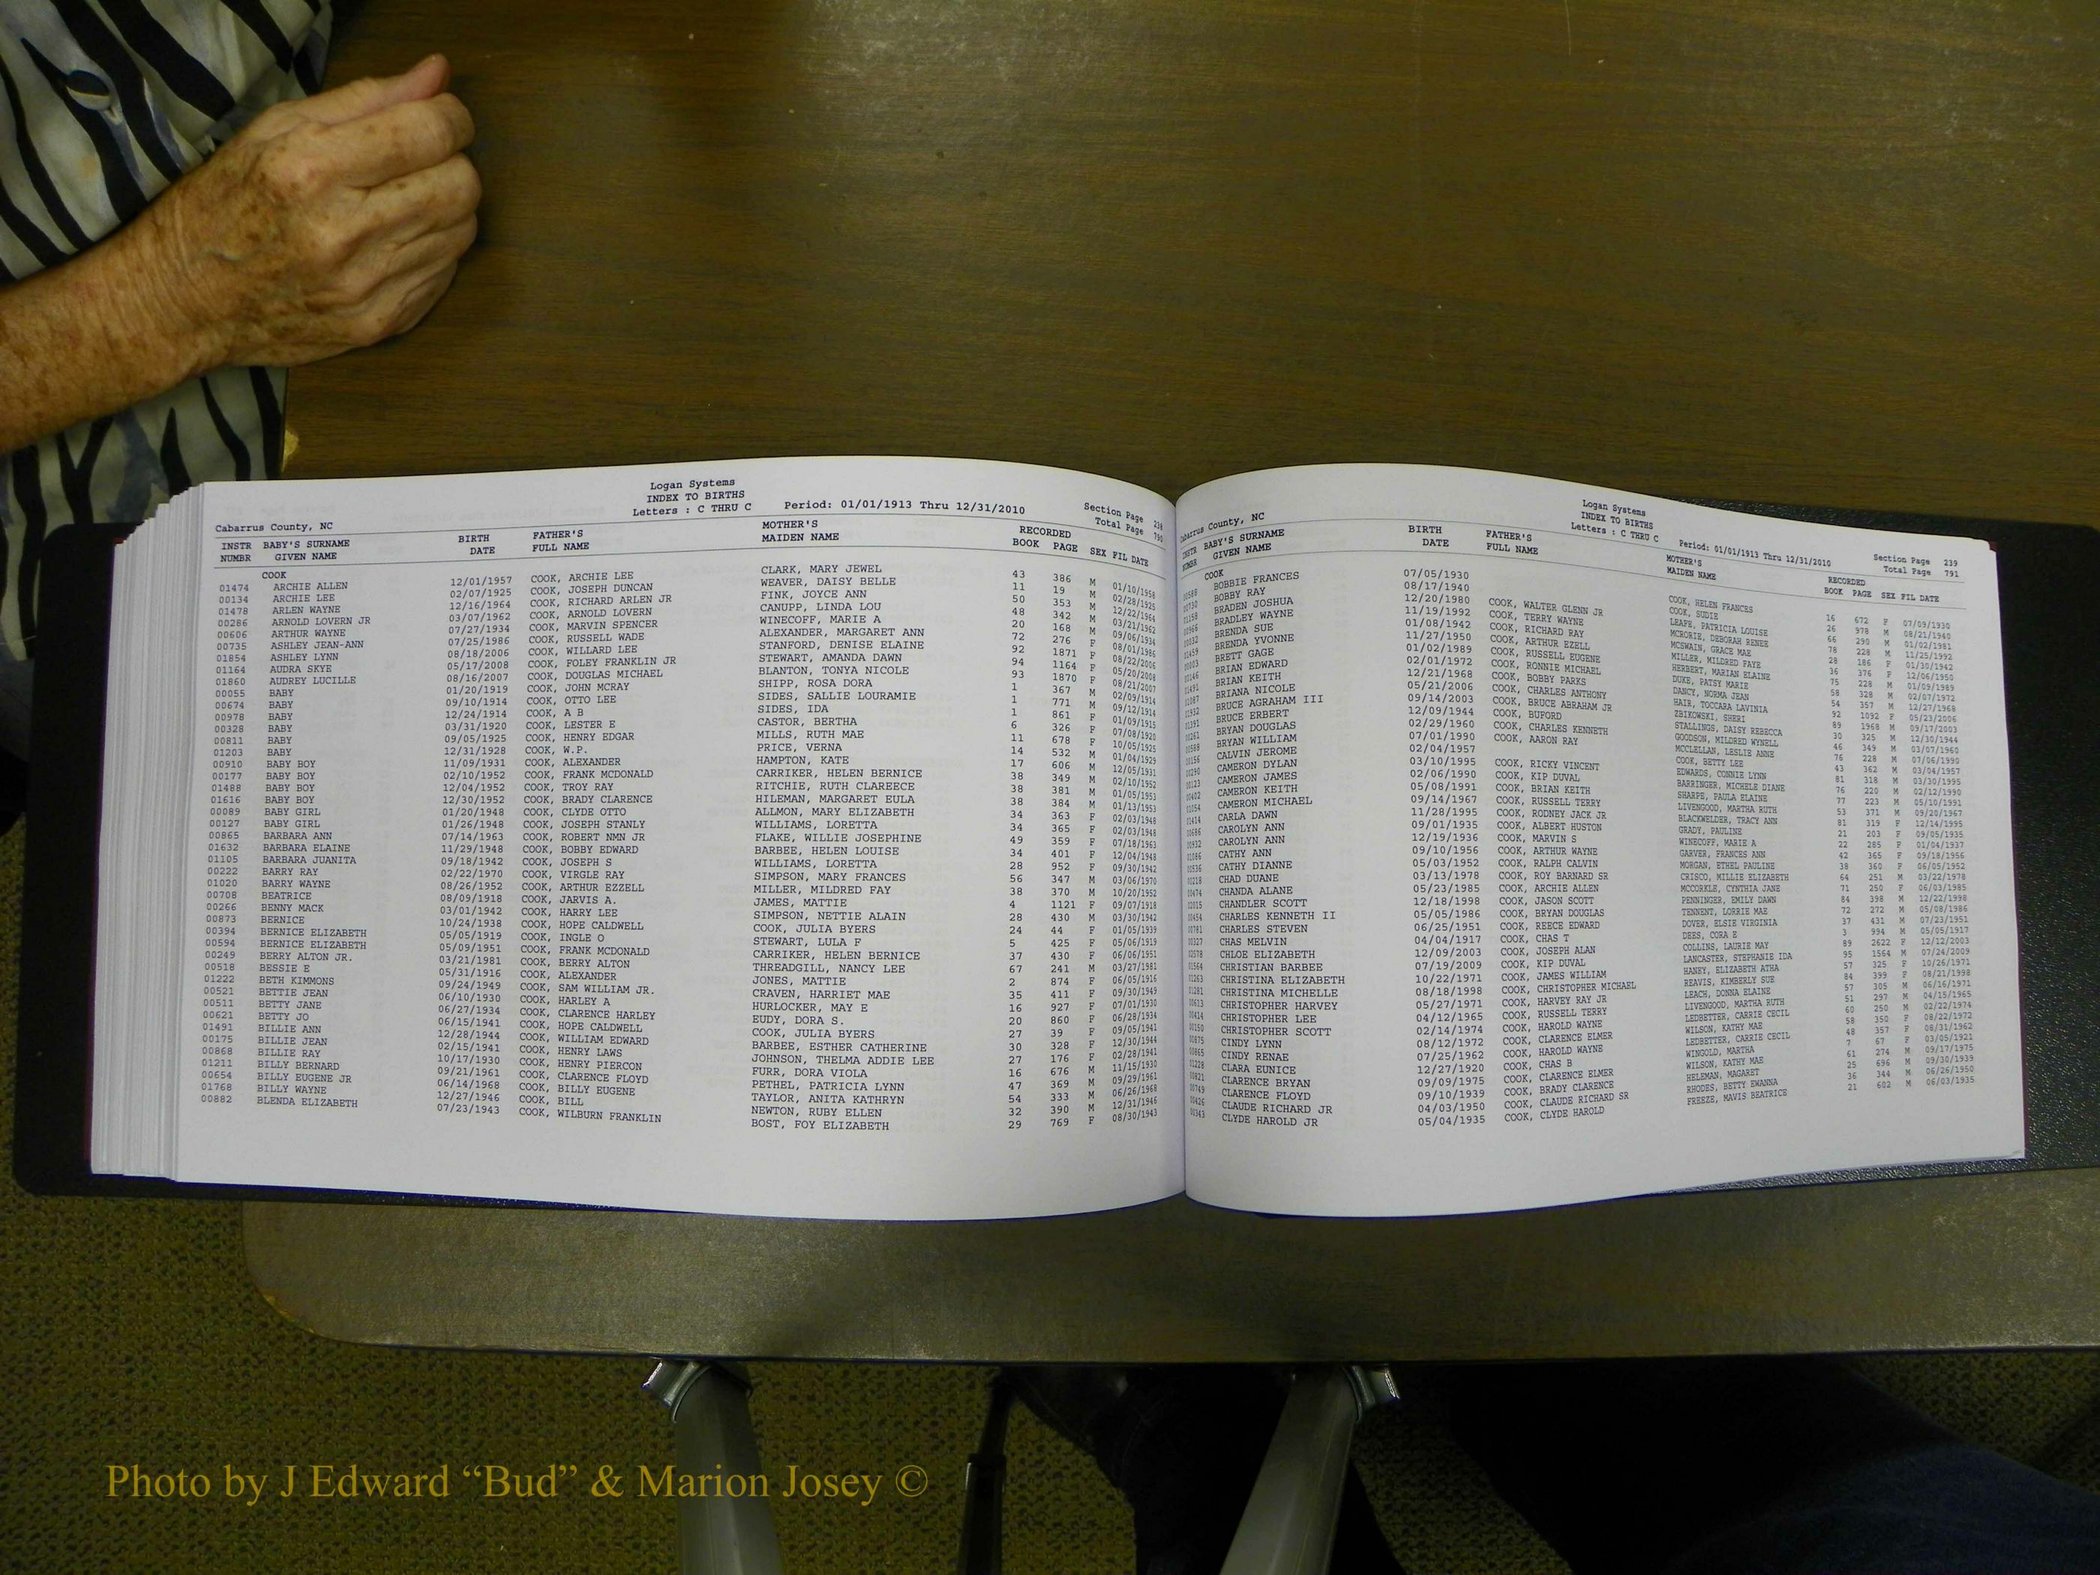 Logan Systems
INDEX TO BIRTHS
Cabarrus County, NC Letters : C THRU C Period: 01/01/1913 Thru 12/31/2010 Section Page 238
Total Page 790
INSTR BABY'S SURNAME BIRTH FATHER'S MOTHER'S RECORDED
NUMBR GIVEN NAME DATE FULL NAME MAIDEN NAME BOOK PAGE SEX FIL DATE
COOK
01474 ARCHIE ALLEN 12/01/1957 COOK, ARCHIE LEE CLARK, MARY JEWEL 43 386 M 01/10/1958
00134 ARCHIE LEE 02/07/1925 COOK, JOSEPH DUNCAN WEAVER, DAISY BELLE 11 19 M 02/28/1925
01478 ARLEN WAYNE 12/16/1964 COOK, RICHARD ARLEN JR FINK, JOYCE ANN 50 353 M 12/22/1964
00286 ARNOLD LOVERN JR 03/07/1962 COOK, ARNOLD LOVERN CANUPP, LINDA LOU 48 342 M 03/21/1962
00606 ARTHUR WAYNE 07/27/1934 COOK, MARVIN SPENCER WINECOFF, MARIE A 20 168 M 09/06/1934
00735 ASHLEY JEAN-ANN 07/25/1986 COOK, RUSSELL WADE ALEXANDER, MARGARET ANN 72 276 F 08/01/1986
01854 ASHLEY LYNN 08/18/2006 COOK, WILLARD LEE STANFORD, DENISE ELAINE 92 1871 F 08/22/2006
01164 AUDRA SKYE 05/17/2008 COOK, FOLEY FRANKLIN JR STEWART, AMANDA DAWN 94 1164 F 05/20/2008
01860 AUDREY LUCILLE 08/16/2007 COOK, DOUGLAS MICHAEL BLANTON, TONYA NICOLE 93 1870 F 08/21/2007
00055 BABY 01/20/1919 COOK, JOHN MCRAY SHIPP, ROSA DORA 1 367 M 02/09/1914
00674 BABY 09/10/1914 COOK, OTTO LEE SIDES, SALLIE LOURAMIE 1 771 M 09/12/1914
00978 BABY 12/24/1914 COOK, A B SIDES, IDA 1 861 F 01/09/1915
00328 BABY 03/31/1920 COOK, LESTER E CASTOR, BERTHA 6 326 F 07/08/1920
00811 BABY 09/05/1925 COOK, HENRY EDGAR MILLS, RUTH MAE 11 678 F 10/05/1925
01203 BABY 12/31/1928 COOK, W.P. PRICE, VERNA 14 532 M 01/04/1929
00910 BABY BOY 11/09/1931 COOK, ALEXANDER HAMPTON, KATE 17 606 M 12/05/1931
00177 BABY BOY 02/10/1952 COOK, FRANK MCDONALD CARRIKER, HELEN BERNICE 38 349 M 02/10/1952
01488 BABY BOY 12/04/1952 COOK, TROY RAY RITCHIE, RUTH CLAREECE 38 381 M 01/05/1953
01616 BABY BOY 12/30/1952 COOK, BRADY CLARENCE HILEMAN, MARGARET EULA 38 384 M 01/13/1953
00089 BABY GIRL 01/20/1948 COOK, CLYDE OTTO ALLMON, MARY ELIZABETH 34 363 F 02/03/1948
00127 BABY GIRL 01/26/1948 COOK, JOSEPH STANLY WILLIAMS, LORETTA 34 365 F 02/03/1948
00865 BARBARA ANN 07/14/1963 COOK, ROBERT NMN JR FLAKE, WILLIE JOSEPHINE 49 359 F 07/18/1963
01632 BARBARA ELAINE 11/29/1948 COOK, BOBBY EDWARD BARBEE, HELEN LOUISE 34 401 F 12/04/1948
01105 BARBARA JUANITA 09/18/1942 COOK, JOSEPH S WILLIAMS, LORETTA 28 952 F 09/30/1942
00222 BARRY RAY 02/22/1970 COOK, VIRGLE RAY SIMPSON, MARY FRANCES 56 347 M 03/06/1970
01020 BARRY WAYNE 08/26/1952 COOK, ARTHUR EZZELL MILLER, MILDRED FAY 38 370 M 10/20/1952
00708 BEATRICE 08/09/1918 COOK, JARVIS A. JAMES, MATTIE 4 1121 F 09/07/1918
00266 BENNY MACK 03/01/1942 COOK, HARRY LEE SIMPSON, NETTIE ALAIN 28 430 M 03/30/1942
00873 BERNICE 10/24/1938 COOK, HOPE CALDWELL COOK, JULIA BYERS 24 44 F 01/05/1939
00394 BERNICE ELIZABETH 05/05/1919 COOK, INGLE O STEWART, LULA F 5 425 F 05/06/1919
00594 BERNICE ELIZABETH 05/09/1951 COOK, FRANK MCDONALD CARRIKER, HELEN BERNICE 37 430 F 06/06/1951
00249 BERRY ALTON JR. 03/21/1981 COOK, BERRY ALTON THREADGILL, NANCY LEE 67 241 M 03/27/1981
00518 BESSIE E 05/31/1916 COOK, ALEXANDER JONES, MATTIE 2 874 F 06/05/1916
01222 BETH KIMMONS 09/24/1949 COOK, SAM WILLIAM JR. CRAVEN, HARRIET MAE 35 411 F 09/30/1949
00521 BETTIE JEAN 06/10/1930 COOK, HARLEY A HURLOCKER, MAY E 16 927 F 07/01/1930
00511 BETTY JANE 06/27/1934 COOK, CLARENCE HARLEY EUDY, DORA S. 20 860 F 06/28/1934
00621 BETTY JO 06/15/1941 COOK, HOPE CALDWELL COOK, JULIA BYERS 27 39 F 09/05/1941
01491 BILLIE ANN 12/28/1944 COOK, WILLIAM EDWARD BARBEE, ESTHER CATHERINE 30 328 F 12/30/1944
00175 BILLIE JEAN 02/15/1941 COOK, HENRY LAWS JOHNSON, THELMA ADDIE LEE 27 176 F 02/28/1941
00868 BILLIE RAY 10/17/1930 COOK, HENRY PIERCON FURR, DORA VIOLA 16 676 M 11/15/1930
01211 BILLY BERNARD 09/21/1961 COOK, CLARENCE FLOYD PETHEL, PATRICIA LYNN 47 369 M 09/29/1961
00654 BILLY EUGENE JR 06/14/1968 COOK, BILLY EUGENE TAYLOR, ANITA KATHRYN 54 333 M 06/26/1968
01768 BILLY WAYNE 12/27/1946 COOK, BILL NEWTON, RUBY ELLEN 32 390 M 12/31/1946
00882 BLENDA ELIZABETH 07/23/1943 COOK, WILBURN FRANKLIN BOST, FOY ELIZABETH 29 769 F 08/30/1943
Logan Systems
INDEX TO BIRTHS
Cabarrus County, NC Letters : C THRU C Period: 01/01/1913 Thru 12/31/2010 Section Page 239
Total Page 791
INSTR BABY'S SURNAME BIRTH FATHER'S MOTHER'S RECORDED
NUMBR GIVEN NAME DATE FULL NAME MAIDEN NAME BOOK PAGE SEX FIL DATE
COOK
BOBBIE FRANCES 07/05/1930 COOK, HELEN FRANCES 16 672 F 07/09/1930
BOBBY RAY 08/17/1940 COOK, SUDIE 26 978 M 08/21/1940
BRADEN JOSHUA 12/20/1980 COOK, WALTER GLENN JR LEAPE, PATRICIA LOUISE 66 290 M 01/02/1981
BRADLEY WAYNE 11/19/1992 COOK, TERRY WAYNE MCRORIE, DEBORAH RENEE 78 228 M 11/25/1992
BRENDA SUE 01/08/1942 COOK, RICHARD RAY MCSWAIN, GRACE MAE 28 186 F 01/30/1942
BRENDA YVONNE 11/27/1950 COOK, ARTHUR EZELL MILLER, MILDRED FAYE 36 376 F 12/06/1950
BRETT GAGE 01/02/1989 COOK, RUSSELL EUGENE HERBERT, MARIAN ELAINE 75 228 M 01/09/1989
BRIAN EDWARD 02/01/1972 COOK, RONNIE MICHAEL DUKE, PATSY MARIE 58 328 M 02/07/1972
BRIAN KEITH 12/21/1968 COOK, BOBBY PARKS DANCY, NORMA JEAN 54 357 M 12/27/1968
BRIANA NICOLE 05/21/2006 COOK, CHARLES ANTHONY HAIR, TOCCARA LAVINIA 92 1092 F 05/23/2006
BRUCE AGRAHAM III 09/14/2003 COOK, BRUCE ABRAHAM JR ZBIKOWSKI, SHERI 89 1968 M 09/17/2003
BRUCE ERBERT 12/09/1944 COOK, BUFORD STALLINGS, DAISY REBECCA 30 325 M 12/30/1944
BRYAN DOUGLAS 02/29/1960 COOK, CHARLES KENNETH GOODSON, MILDRED WYNELL 46 349 M 03/07/1960
BRYAN WILLIAM 07/01/1990 COOK, AARON RAY MCCLELLAN, LESLIE ANNE 76 228 M 07/06/1990
CALVIN JEROME 02/04/1957 COOK, BETTY LEE 43 362 M 03/04/1957
CAMERON DYLAN 03/10/1995 COOK, RICKY VINCENT EDWARDS, CONNIE LYNN 81 318 M 03/30/1995
CAMERON JAMES 02/06/1990 COOK, KIP DUVAL BARRINGER, MICHELE DIANE 76 220 M 02/12/1990
CAMERON KEITH 05/08/1991 COOK, BRIAN KEITH SHARPE, PAULA ELAINE 77 223 M 05/10/1991
CAMERON MICHAEL 09/14/1967 COOK, RUSSELL TERRY LIVENGOOD, MARTHA RUTH 53 371 M 09/20/1967
CARLA DAWN 11/28/1995 COOK, RODNEY JACK JR BLACKWELDER, TRACY ANN 81 319 F 12/14/1995
CAROLYN ANN 09/01/1935 COOK, ALBERT HUSTON GRADY, PAULINE 21 203 F 09/05/1935
CAROLYN ANN 12/19/1936 COOK, MARVIN S WINECOFF, MARIE A 22 285 F 01/04/1937
CATHY ANN 09/10/1956 COOK, ARTHUR WAYNE GARVER, FRANCES ANN 42 365 F 09/18/1956
CATHY DIANNE 05/03/1952 COOK, RALPH CALVIN MORGAN, ETHEL PAULINE 38 360 F 06/05/1952
CHAD DUANE 03/13/1978 COOK, ROY BARNARD SR CRISCO, MILLIE ELIZABETH 64 251 M 03/22/1978
CHANDA ALANE 05/23/1985 COOK, ARCHIE ALLEN MCCORKLE, CYNTHIA JANE 71 250 F 06/03/1985
CHANDLER SCOTT 12/18/1998 COOK, JASON SCOTT PENNINGER, EMILY DAWN 84 398 M 12/22/1998
CHARLES KENNETH II 05/05/1986 COOK, BRYAN DOUGLAS TENNENT, LORRIE MAE 72 272 M 05/08/1986
CHARLES STEVEN 06/25/1951 COOK, REECE EDWARD DOVER, ELSIE VIRGINIA 37 431 M 07/23/1951
CHAS MELVIN 04/04/1917 COOK, CHAS T DEES, CORA E 3 994 M 05/05/1917
CHLOE ELIZABETH 12/09/2003 COOK, JOSEPH ALAN COLLINS, LAURIE MAY 89 2622 F 12/12/2003
CHRISTIAN BARBEE 07/19/2009 COOK, KIP DUVAL LANCASTER, STEPHANIE IDA 95 1564 M 07/24/2009
CHRISTINA ELIZABETH 10/22/1971 COOK, JAMES WILLIAM HANEY, ELIZABETH ATHA 57 325 F 10/26/1971
CHRISTINA MICHELLE 08/18/1998 COOK, CHRISTOPHER MICHAEL REAVIS, KIMBERLY SUE 84 399 F 08/21/1998
CHRISTOPHER HARVEY 05/27/1971 COOK, HARVEY RAY JR LEACH, DONNA ELAINE 57 305 M 06/16/1971
CHRISTOPHER LEE 04/12/1965 COOK, RUSSELL TERRY LIVENGOOD, MARTHA RUTH 51 297 M 04/15/1965
CHRISTOPHER SCOTT 02/14/1974 COOK, HAROLD WAYNE LEDBETTER, CARRIE CECIL 60 250 M 02/22/1974
CINDY LYNN 08/12/1972 COOK, CLARENCE ELMER WILSON, KATHY MAE 58 350 F 08/22/1972
CINDY RENAE 07/25/1962 COOK, HAROLD WAYNE LEDBETTER, CARRIE CECIL 48 357 F 08/31/1962
CLARA EUNICE 12/27/1920 COOK, CHAS B WINGOLD, MARTHA 7 67 F 03/05/1921
CLARENCE BRYAN 09/09/1975 COOK, CLARENCE ELMER WILSON, KATHY MAE 61 274 M 09/17/1975
CLARENCE FLOYD 09/10/1939 COOK, BRADY CLARENCE HELEMAN, MAGARET 25 696 M 09/30/1939
CLAUDE RICHARD JR 04/03/1950 COOK, CLAUDE RICHARD SR RHODES, BETTY EWANNA 36 344 M 06/26/1950
CLYDE HAROLD JR 05/04/1935 COOK, CLYDE HAROLD FREEZE, MAVIS BEATRICE 21 602 M 06/03/1935
Photo by J Edward “Bud” & Marion Josey ©